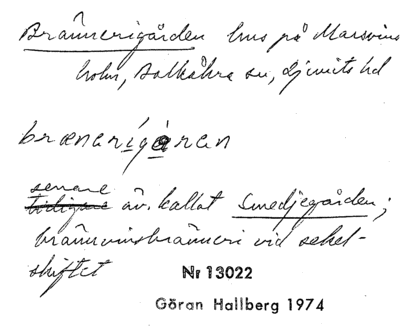 Brännerigården hus på Marsvins
holm, Balkåkra sn, Ljunits hd
brænerigåran
senare
tidigare äv. kallat Smedjegården;
brännvinsbränneri vid sekel-
skiftet
Nr 13022
Göran Hallberg 1974